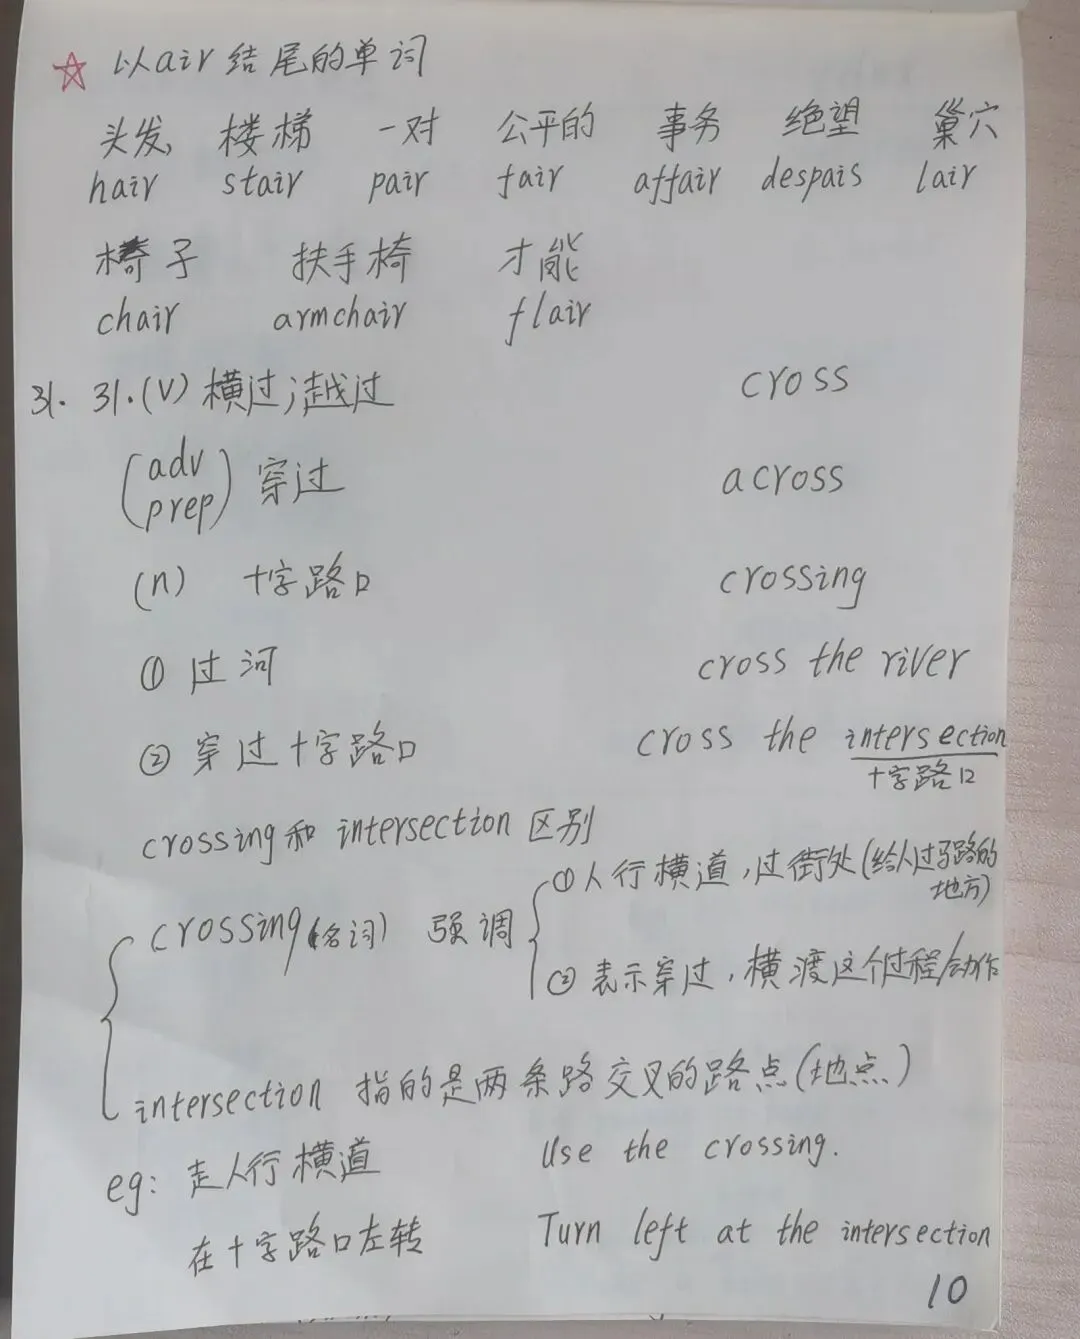 ☆ 以air结尾的单词
头发, 楼梯 一对 公平的 事务 绝望 巢穴
hair stair pair fair affair despais lair
椅子 扶手椅 才能
chair armchair flair
31. 31.(v) 横过;越过 cross
(adv prep) 穿过 across
(n) 十字路口 crossing
① 过河 cross the river
② 穿过十字路口 cross the intersection
十字路口
crossing和intersection区别
crossing(名词) 强调 ①人行横道,过街处(给人过马路的地方)
②表示穿过,横渡这个过程/动作
intersection 指的是两条路交叉的路点(地点)
eg: 走人行横道 Use the crossing.
在十字路口左转 Turn left at the intersection
10